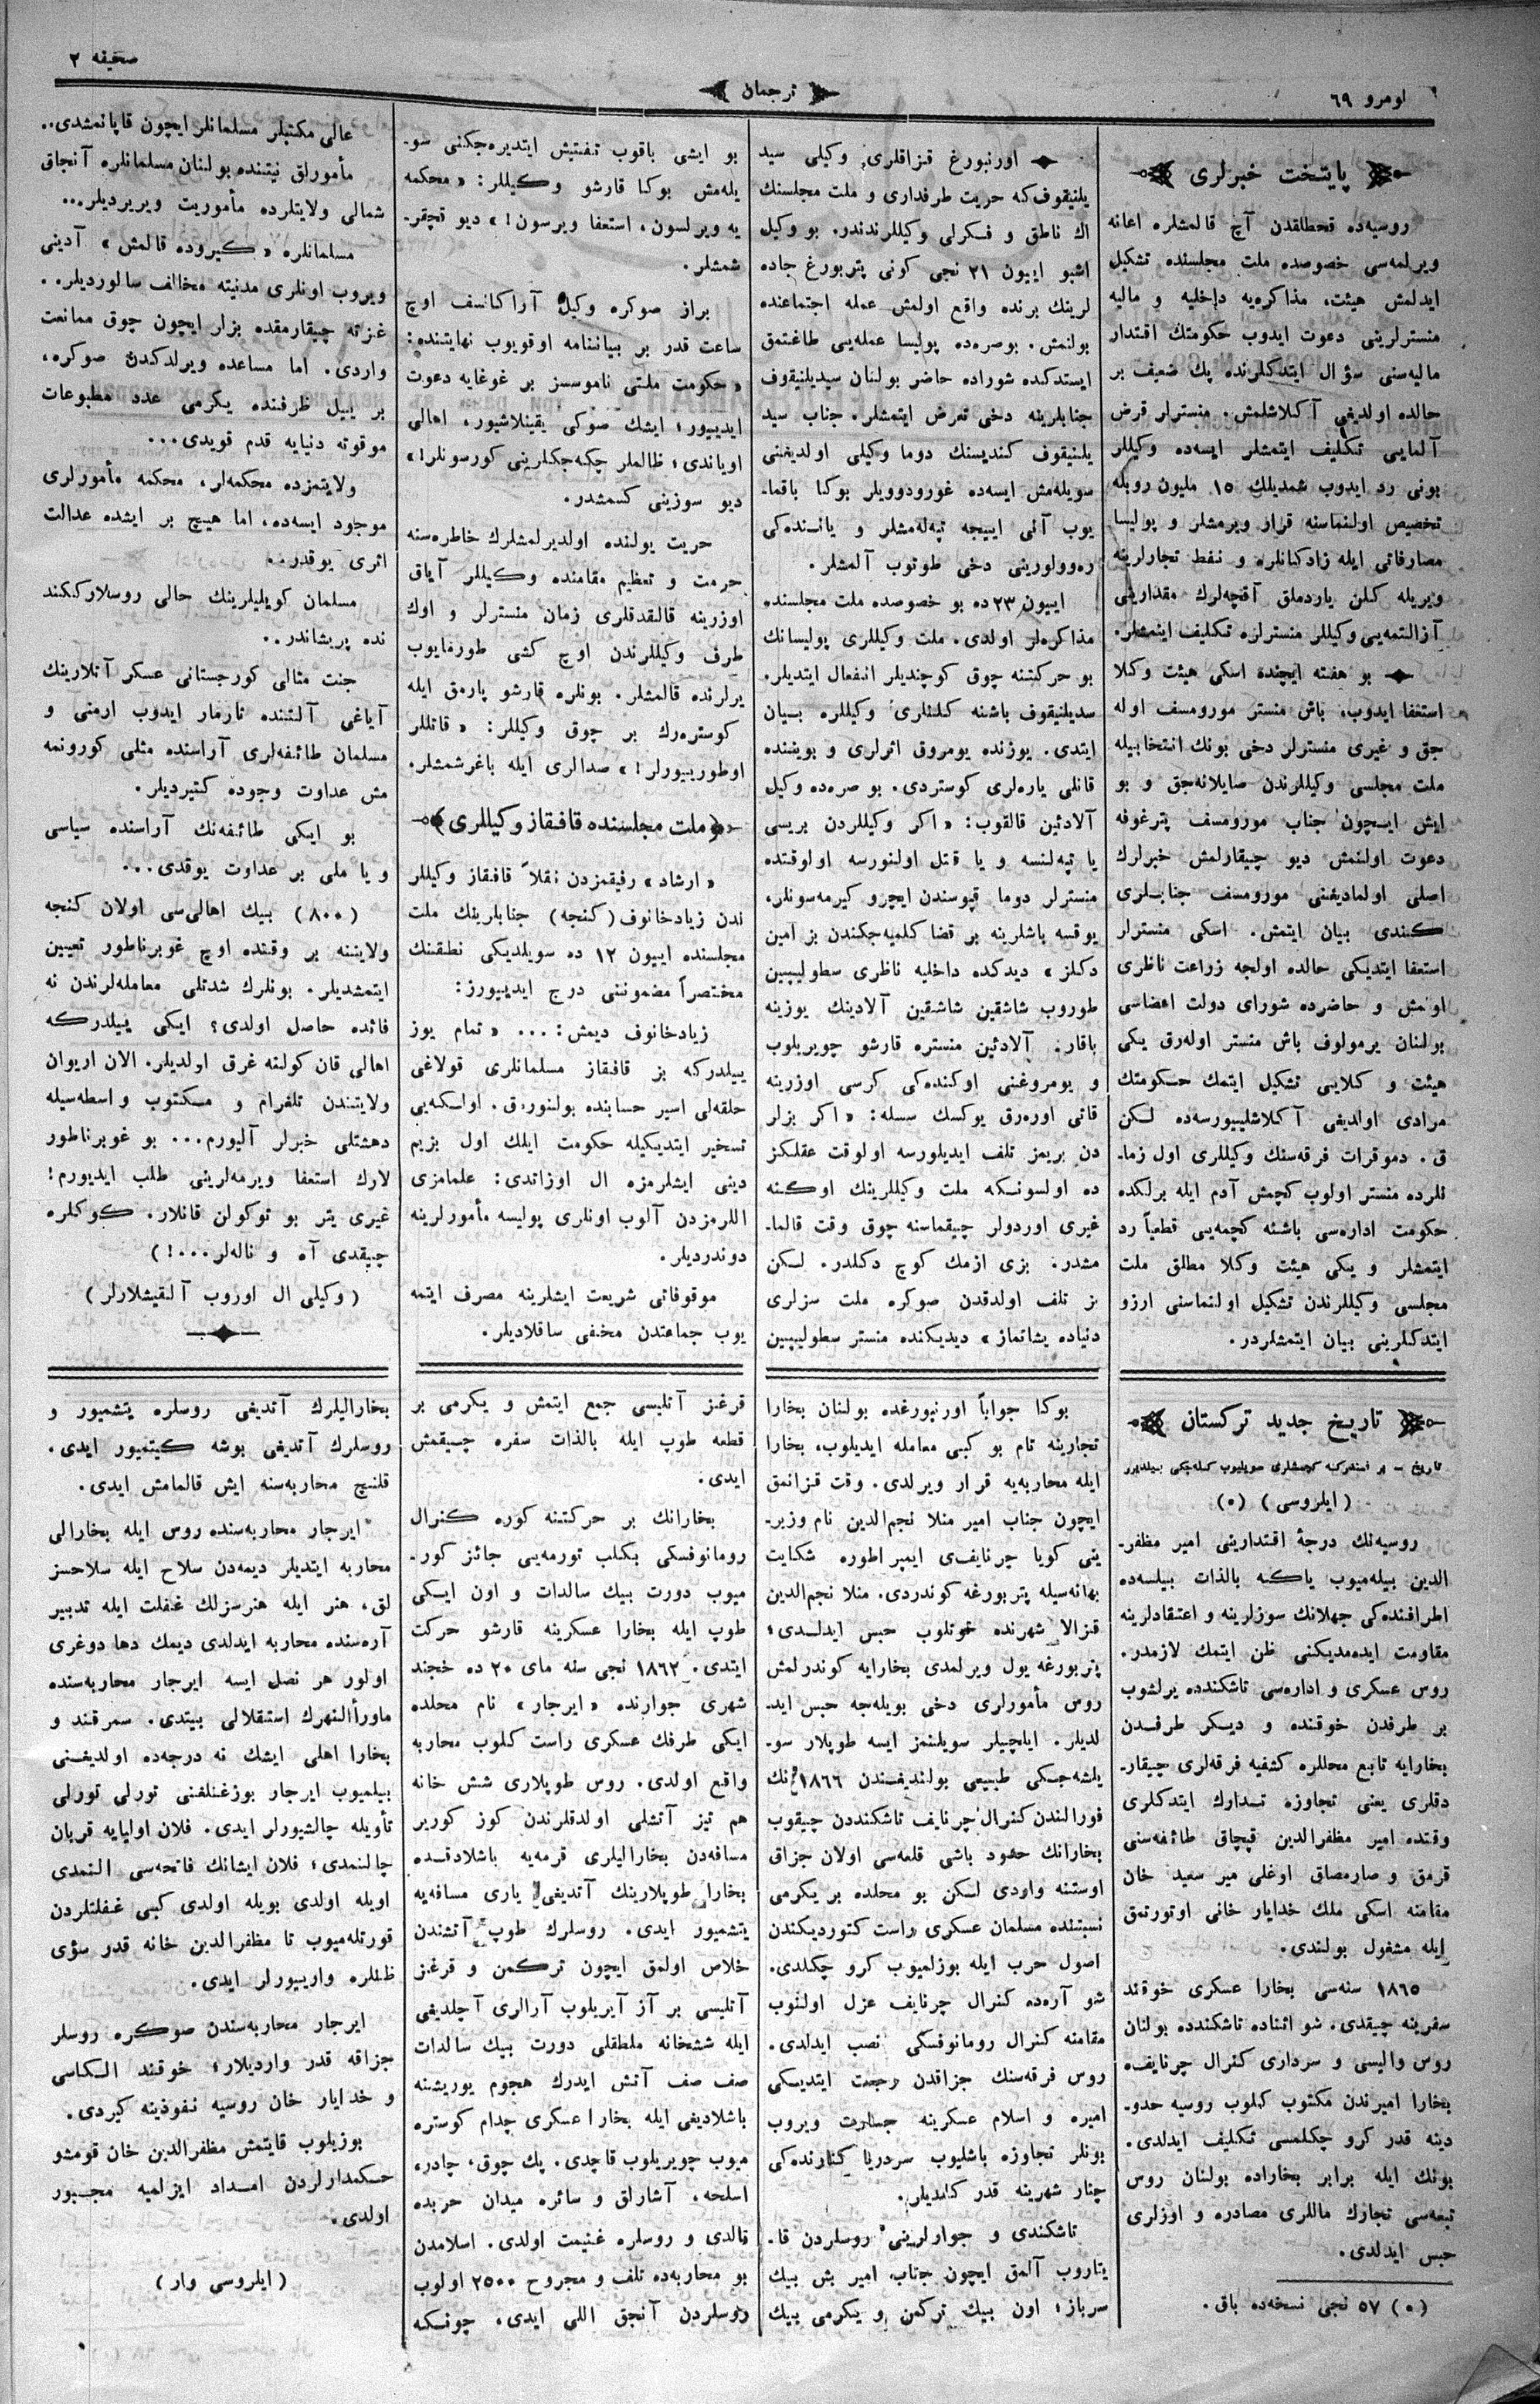 نومرو ٦٩
ترجمان
صحیفه ٢
پایتخت خبرلری
روسیه‌ده قحطلقدن آچ قالمشلره اعانه
ویرلمه‌سی خصوصده ملت مجلسنده تشکیل
ایدلمش هیئت، مذاکره‌یه داخلیه و مالیه
منسترلرینی دعوت ایدوب حکومتك اقتدار
مالیه‌سنی سؤال ایتدکلرنده پك ضعیف بر
حالده اولدیغی آکلاشلمش. منسترلر قرض
آلمایی تکلیف ایتمشلر ایسه‌ده وکیللر
بونی رد ایدوب شمدیلك ١٥ ملیون روبله
تخصیص اولنماسنه قرار ویرمشلر و پولیسا
مصارفاتی ایله زادکانلره و نفط تجارلرینه
ویریله کلن یاردملق آقچه‌لرك مقدارینی
آزالتمه‌یی وکیللر منسترلره تکلیف ایتمشلر.
بو هفته ایچنده اسکی هیئت وکلا
استعفا ایدوب، باش منستر مورومسف اوله
جق و غیری منسترلر دخی بونك انتخابیله
ملت مجلسی وکیللرندن صایلانه‌جق و بو
ایش ایچون جناب مورومسف پترغوفه
دعوت اولنمش دیو چیقارلمش خبرلرك
اصلی اولمادیغنی مورومسف جنابلری
کندی بیان ایتمش. اسکی منسترلر
استعفا ایتدیکی حالده اولجه زراعت ناظری
اولمش و حاضرده شورای دولت اعضاسی
بولنان یرمولوف باش منستر اوله‌رق یکی
هیئت و کلایی تشکیل ایتمك حکومتك
مرادی اولدیغی آکلاشلیبورسه‌ده لکن
ق. دموقرات فرقه‌سنك وکیللری اول زما-
نلرده منستر اولوب کچمش آدم ایله برلکده
حکومت اداره‌سی باشنه کچمه‌یی قطعیاً رد
ایتمشلر و یکی هیئت وکلا مطلق ملت
مجلسی وکیللرندن تشکیل اولنماسنی ارزو
ایتدکلرینی بیان ایتمشلردر.
اورنبورغ قزاقلری وکیلی سید
یلنیقوف که حریت طرفداری و ملت مجلسنك
اك ناطق و فکرلی وکیللرندندر. بو وکیل
اشبو اییون ٢١ نجی کونی پتربورغ جاده
لرینك برنده واقع اولمش عمله اجتماعنده
بولنمش. بوصره‌ده پولیسا عمله‌یی طاغتمق
ایستدکده شوراده حاضر بولنان سیدیلنیقوف
جنابلرینه دخی تعرض ایتمشلر. جناب سید
یلنیقوف کندیسنك دوما وکیلی اولدیغنی
سویله‌مش ایسه‌ده غورودوویلر بوکا باقما-
یوب آنی اییجه تپه‌له‌مشلر و یانـنده‌کی
ره‌وولورینی دخی طوتوب آلمشلر.
اییون ٢٣ده بو خصوصده ملت مجلسنده
مذاکره‌لر اولدی. ملت وکیللری پولیسانك
بو حرکتنه چوق کوچندیلر انفعال ایتدیلر.
سدیلنیقوف باشنه کلنلری وکیللره بیان
ایتدی. یوزنده یومروق اثرلری و بویننده
قانلی یاره‌لری کوستردی. بو صره‌ده وکیل
آلادئین قالقوب: « اکر وکیللردن بریسی
یا تپه‌لنسه و یا قتل اولنورسه اولوقتده
منسترلر دوما قپوسندن ایچرو کیرمه‌سونلر،
یوقسه باشلرینه بر قضا کلمیه‌جکندن بز امین
دکلز » دیدکده داخلیه ناظری سطولیپین
طوروب شاشقین شاشقین آلادینك یوزینه
باقار. آلادئین منستره قارشو چویریلوب
و یومروغنی اوکنده‌کی کرسی اوزرینه
قاتی اوره‌رق یوکسك سسله: « اکر بزلر
دن بریمز تلف ایدیلورسه اولوقت عقلکز
ده اولسونکه ملت وکیللرینك اوکنه
غیری اوردولر چیقماسنه چوق وقت قالما-
مشدر. بزی ازمك کوچ دکلدر. لکن
بز تلف اولدقدن صوکره ملت سزلری
دنیاده یشاتماز » دیدیکنده منستر سطولیپین
بو ایشی باقوب تفتیش ایتدیره‌جکنی سو-
یله‌مش بوکا قارشو وکیللر: « محکمه
یه ویرلسون، استعفا ویرسون! » دیو قچقر-
شمشلر.
براز صوکره وکیل آراکانسف اوچ
ساعت قدر بر بیاننامه اوقویوب نهایتنده:
« حکومت ملتی ناموسسز بر غوغایه دعوت
ایدیبور؛ ایشك صوکی یقینلاشیور، اهالی
اویاندی؛ ظالملر چکه‌جکلرینی کورسونلر! »
دیو سوزینی کسمشدر.
حریت یولنده اولدیرلمشلرك خاطره‌سنه
حرمت و تعظیم مقامنده وکیللر آیاق
اوزرینه قالقدقلری زمان منسترلر و اوك
طرف وکیللرندن اوچ کشی طورمایوب
یرلرنده قالمشلر. بونلره قارشو پارمق ایله
کوستره‌رك بر چوق وکیللر: « قاتللر
اوطوریبورلر! » صدالری ایله باغرشمشلر.
ملت مجلسنده قافقاز وکیللری
« ارشاد » رفیقمزدن نقلاً قافقاز وکیللر
ندن زیادخانوف (کنجه) جنابلرینك ملت
مجلسنده اییون ١٢ ده سویلدیکی نطقنك
مختصراً مضموننی درج ایدییورز:
زیادخانوف دیمش: ... « تمام یوز
ییلدرکه بز قافقاز مسلمانلری قولاغی
حلقه‌لی اسیر حسابنده بولنورق. اولکه‌یی
تسخیر ایتدیکیله حکومت ایلك اول بزیم
دینی ایشلرمزه ال اوزاتدی: علمامزی
اللرمزدن آلوب اونلری پولیسه مأمورلرینه
دوندردیلر.
موقوفاتی شریعت ایشلرینه مصرف ایتمه
یوب جماعتدن مخفی ساقلادیلر.
عالی مکتبلر مسلمانلر ایچون قاپانمشدی..
مأمورلق نیتنده بولنان مسلمانلره آنجاق
شمالی ولایتلرده مأموریت ویریردیلر...
مسلمانلره « کیروده قالمش » آدینی
ویروب اونلری مدنیته مخالف سالوردیلر..
غزته چیقارمقده بزلر ایچون چوق ممانعت
واردی. اما مساعده ویرلدکدن صوکره،
بر ییل ظرفنده یکرمی عدد مطبوعات
موقوته دنیایه قدم قویدی...
ولایتمزده محکمه‌لر، محکمه مأمورلری
موجود ایسه‌ده، اما هیچ بر ایشده عدالت
اثری یوقدر..
مسلمان کویلیلرینك حالی روسلارککند
نده پریشاندر..
جنت مثالی کورجستانی عسکر آتلارینك
آیاغی آلتننده تارمار ایدوب ارمنی و
مسلمان طائفه‌لری آراسنده مثلی کورونمه
مش عداوت وجوده کتیردیلر.
بو ایکی طائفه‌نك آراسنده سیاسی
و یا ملی بر عداوت یوقدی...
(٨٠٠) بیك اهالی‌سی اولان کنجه
ولایتنه بر وقتده اوچ غوبرناطور تعیین
ایتمشدیلر. بونلرك شدتلی معامله‌لرندن نه
فائده حاصل اولدی؟ ایکی ییلدرکه
اهالی قان کولنه غرق اولدیلر. الان اریوان
ولایتندن تلغرام و مکتوب واسطه‌سیله
دهشتلی خبرلر آلیورم... بو غوبرناطور
لارك استعفا ویرمه‌لرینی طلب ایدیورم!
غیری یتر بو توکولن قانلار. کوکلره
چیقدی آه و ناله‌لر...!)
(وکیلی ال اوروب آلقیشلارلر)
تاریخ جدید ترکستان
تاریخ - بر استادرکه کچمشلری سویلیوب کله‌جکی بیلدیرر
(ایلروسی) (٠)
روسیه‌نك درجهٔ اقتدارینی امیر مظفر-
الدین بیله‌میوب یاکه بالذات بیلسه‌ده
اطرافنده‌کی جهلانك سوزلرینه و اعتقادلرینه
مقاومت ایده‌مدیکنی ظن ایتمك لازمدر.
روس عسکری و اداره‌سی تاشکندده یرلشوب
بر طرفدن خوقنده و دیکر طرفدن
بخارایه تابع محللره کشفیه فرقه‌لری چیقار-
دقلری یعنی تجاوزه تدارك ایتدکلری
وقتده امیر مظفرالدین قپچاق طائفه‌سنی
قرمق و صارمصاق اوغلی میر سعید خان
مقامنه اسکی ملك خدایار خانی اوتورتمق
ایله مشغول بولندی.
١٨٦٥ سنه‌سی بخارا عسکری خوقند
سفرینه چیقدی. شو اثناده تاشکندده بولنان
روس والیسی و سرداری کنرال چرنایفه
بخارا امیرندن مکتوب کلوب روسیه حدو-
دینه قدر کرو چکلمسی تکلیف ایدلدی.
بونك ایله برابر بخاراده بولنان روس
تبعه‌سی تجارك ماللری مصادره و اوزلری
حبس ایدلدی.
(٠) ٥٧ نجی نسخه‌ده باق.
بوکا جواباً اورنبورغده بولنان بخارا
تجارینه تام بو کبی معامله ایدیلوب، بخارا
ایله محاربه‌یه قرار ویرلدی. وقت قزانمق
ایچون جناب امیر منلا نجم‌الدین نام وزیر-
ینی کویا چرنایف‌ی ایمپراطوره شکایت
بهانه‌سیله پتربورغه کوندردی. منلا نجم‌الدین
قزالا شهرنده طوتلوب حبس ایدلدی؛
پتربورغه یول ویرلمدی بخارایه کوندرلمش
روس مأمورلری دخی بویله‌جه حبس اید-
لدیلر. ایلچیلر سویلنمز ایسه طوپلار سو-
یلشه‌جکی طبیعی بولندیغندن ١٨٦٦ نك
فورالندن کنرال چرنایف تاشکنددن چیقوب
بخارانك حدود باشی قلعه‌سی اولان جزاق
اوستنه واردی لکن بو محلده بر یکرمی
نسبتنده مسلمان عسکری راست کتوردیکندن
اصول حرب ایله بوزلمیوب کرو چکلدی.
شو آره‌ده کنرال چرنایف عزل اولنوب
مقامنه کنرال رومانوفسکی نصب ایدلدی.
روس فرقه‌سنك جزاقدن رجعت ایتدیکی
امیره و اسلام عسکرینه جسارت ویروب
بونلر تجاوزه باشلیوب سردریا کنارنده‌کی
چنار شهرینه قدر کلدیلر.
تاشکندی و جوارلرینی روسلردن قا-
یتاروب آلمق ایچون جناب امیر بش بیك
سرباز؛ اون بیك ترکمن و یکرمی بیك
قرغز آتلیسی جمع ایتمش و یکرمی بر
قطعه طوپ ایله بالذات سفره چیقمش
ایدی.
بخارانك بر حرکتنه کوره کنرال
رومانوفسکی بکلب تورمه‌یی جائز کور-
میوب دورت بیك سالدات و اون ایکی
طوپ ایله بخارا عسکرینه قارشو حرکت
ایتدی. ١٨٦٢ نجی سنه مای ٢٠ ده خجند
شهری جوارنده « ایرجار » نام محلده
ایکی طرفك عسکری راست کلوب محاربه
واقع اولدی. روس طوپلاری شش خانه
هم تیز آتشلی اولدقلرندن کوز کوریر
مسافه‌دن بخارالیلری قرمه‌یه باشلادقده
بخارا طوپلارینك آتدیغی یاری مسافه‌یه
یتشمیور ایدی. روسلرك طوپ آتشندن
خلاص اولمق ایچون ترکمن و قرغز
آتلیسی بر آز آیریلوب آرالری آچلدیغی
ایله ششخانه ملطقلی دورت بیك سالدات
صف صف آتش ایدرك هجوم یوریشنه
باشلادیغی ایله بخارا عسکری چدام کوستره
میوب چویریلوب قاچدی. پك چوق، چادر،
اسلحه، آشارلق و سائره میدان حربده
قالدی و روسلره غنیمت اولدی. اسلامدن
بو محاربه‌ده تلف و مجروح ٢٥٠٠ اولوب
روسلردن آنجق اللی ایدی، چونکه
بخارالیلرك آتدیغی روسلره یتشمیور و
روسلرك آتدیغی بوشه کیتمیور ایدی.
قلنچ محاربه‌سنه ایش قالمامش ایدی.
ایرجار محاربه‌سنده روس ایله بخارالی
محاربه ایتدیلر دیمه‌دن سلاح ایله سلاحسز
لق، هنر ایله هنرسزلك غفلت ایله تدبیر
آره‌سنده محاربه ایدلدی دیمك دها دوغری
اولور هر نصل ایسه ایرجار محاربه‌سنده
ماورأالنهرك استقلالی بیتدی. سمرقند و
بخارا اهلی ایشك نه درجه‌ده اولدیغنی
بیلمیوب ایرجار بوزغنلغنی تورلی تورلی
تأویله چالشیورلر ایدی. فلان اولیایه قربان
چالنمدی؛ فلان ایشانك فاتحه‌سی النمدی
اویله اولدی بویله اولدی کبی غفلتلردن
قورتله‌میوب تا مظفرالدین خانه قدر سؤی
ظنلره وارییورلر ایدی.
ایرجار محاربه‌سندن صوکره روسلر
جزاقه قدر واردیلار؛ خوقند الکاسی
و خدایار خان روسیه نفوذینه کیردی.
بوزیلوب قایتمش مظفرالدین خان قومشو
حکمدارلردن امداد ایزلمیه مجبور
اولدی.
(ایلروسی وار)